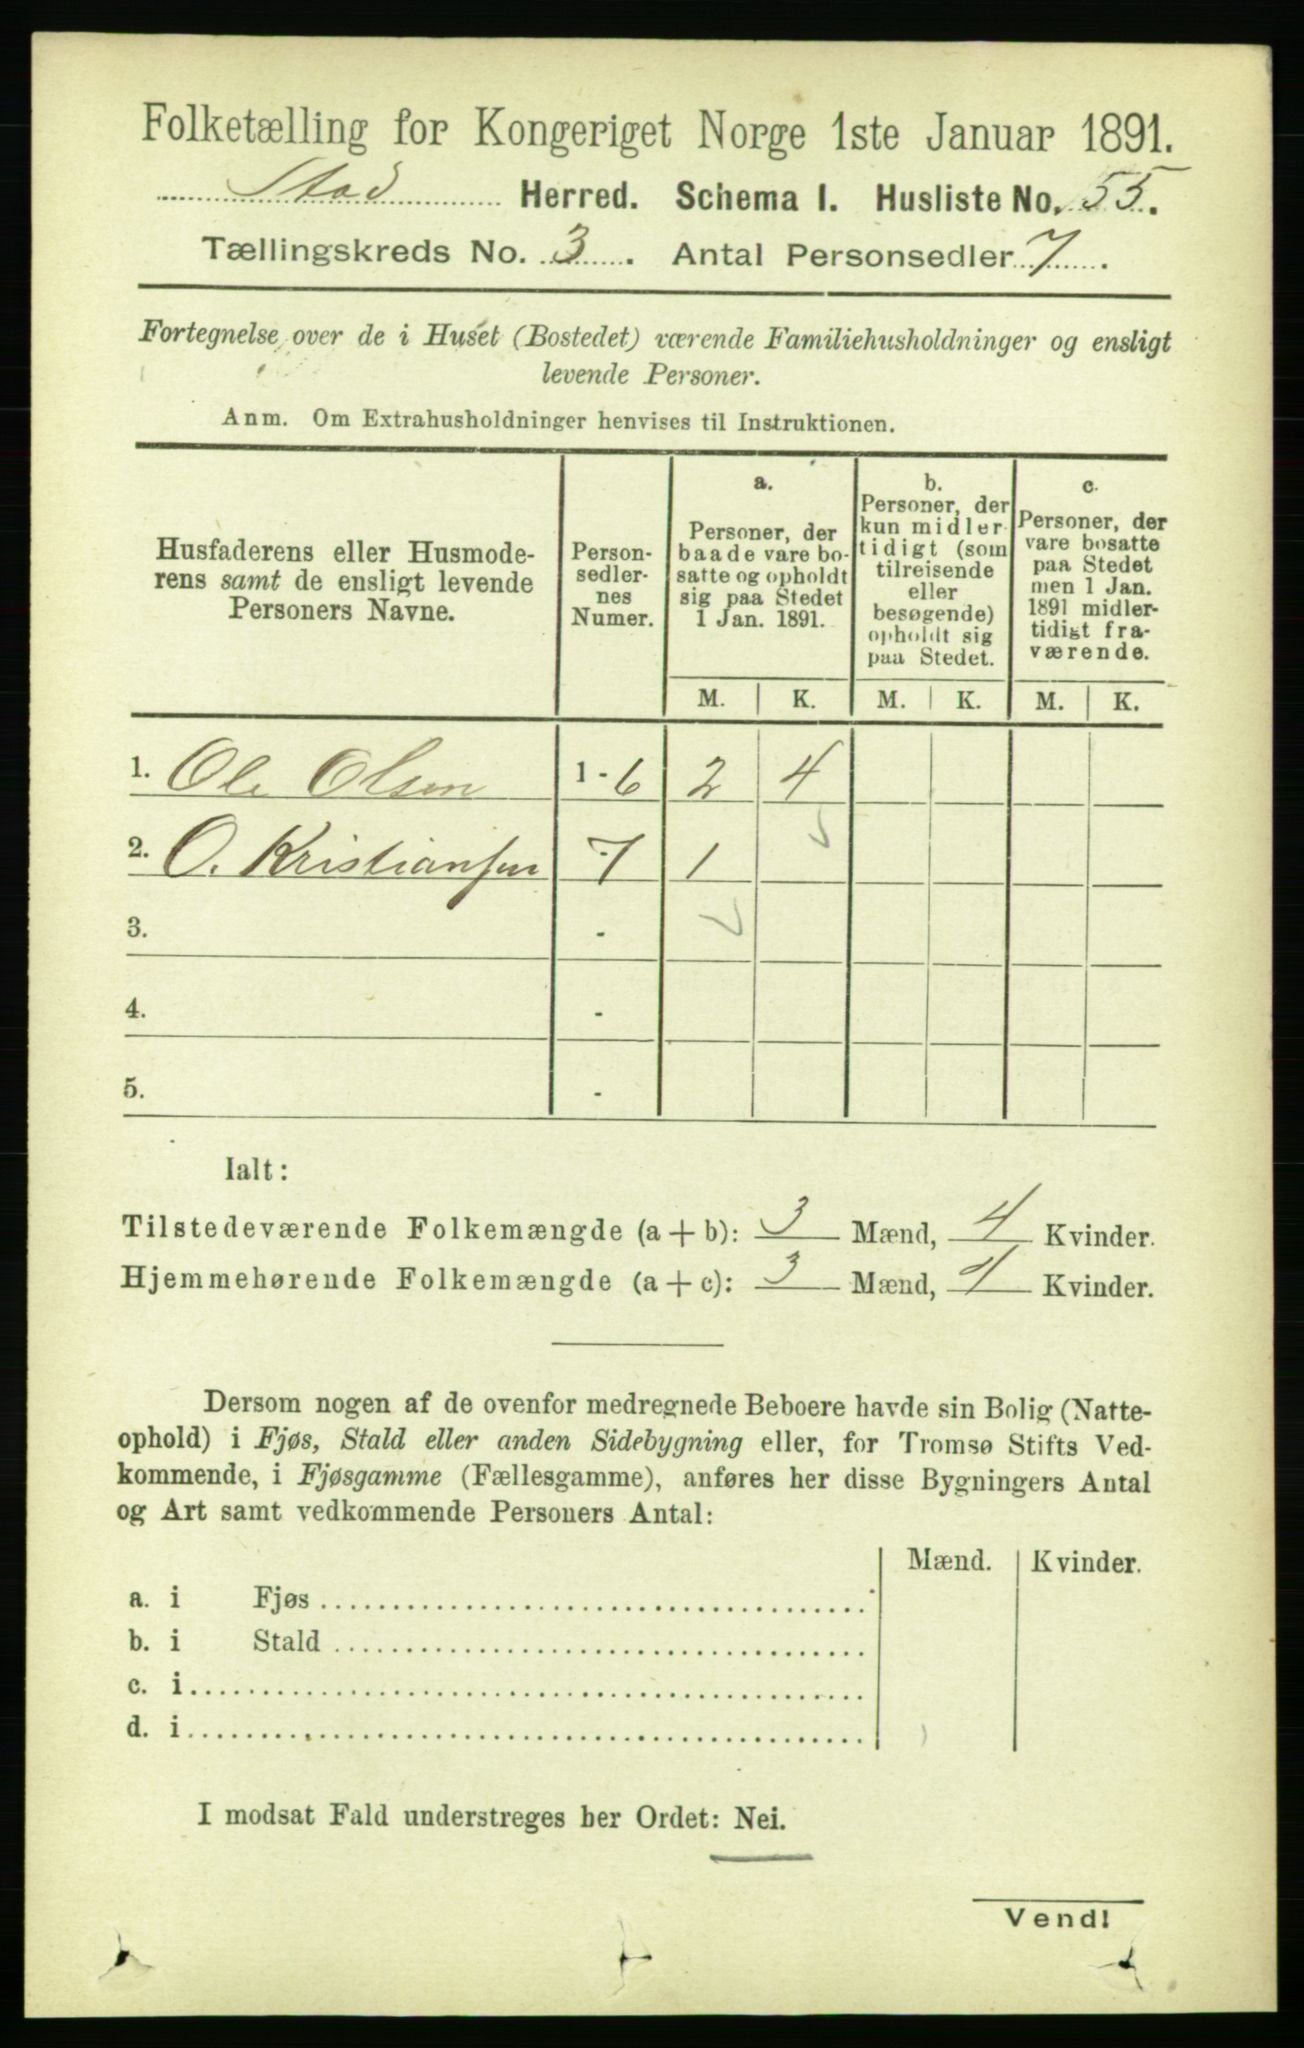 Folketælling for Kongeriget Norge 1ste Januar 1891.
Stod Herred. Schema I. Husliste No. 55.
Tællingskreds No. 3. Antal Personsedler 7.
Fortegnelse over de i Huset (Bostedet) værende Familiehusholdninger og ensligt
levende Personer.
Anm. Om Extrahusholdninger henvises til Instruktionen.
Husfaderens eller Husmode-
rens samt de ensligt levende
Personers Navne.
Person-
sedler-
nes
Numer.
a.
Personer, der
baade vare bo-
satte og opholdt
sig paa Stedet
1 Jan. 1891.
b.
Personer, der
kun midler-
tidigt (som
tilreisende
eller
besøgende)
opholdt sig
paa Stedet.
c.
Personer, der
vare bosatte
paa Stedet
men 1 Jan.
1891 midler-
tidigt fra-
værende.
M. K. M. K. M. K.
1. Ole Olsen 1 - 6 2 4
2. O. Kristiansen 7 1
3. -
4. -
5. -
Ialt:
Tilstedeværende Folkemængde (a + b): 3 Mænd, 4 Kvinder.
Hjemmehørende Folkemængde (a + c): 3 Mænd, 4 Kvinder.
Dersom nogen af de ovenfor medregnede Beboere havde sin Bolig (Natte-
ophold) i Fjøs, Stald eller anden Sidebygning eller, for Tromsø Stifts Ved-
kommende, i Fjøsgamme (Fællesgamme), anføres her disse Bygningers Antal
og Art samt vedkommende Personers Antal:
Mænd. Kvinder.
a. i Fjøs
b. i Stald
c. i
d. i
I modsat Fald understreges her Ordet: Nei.
Vend!